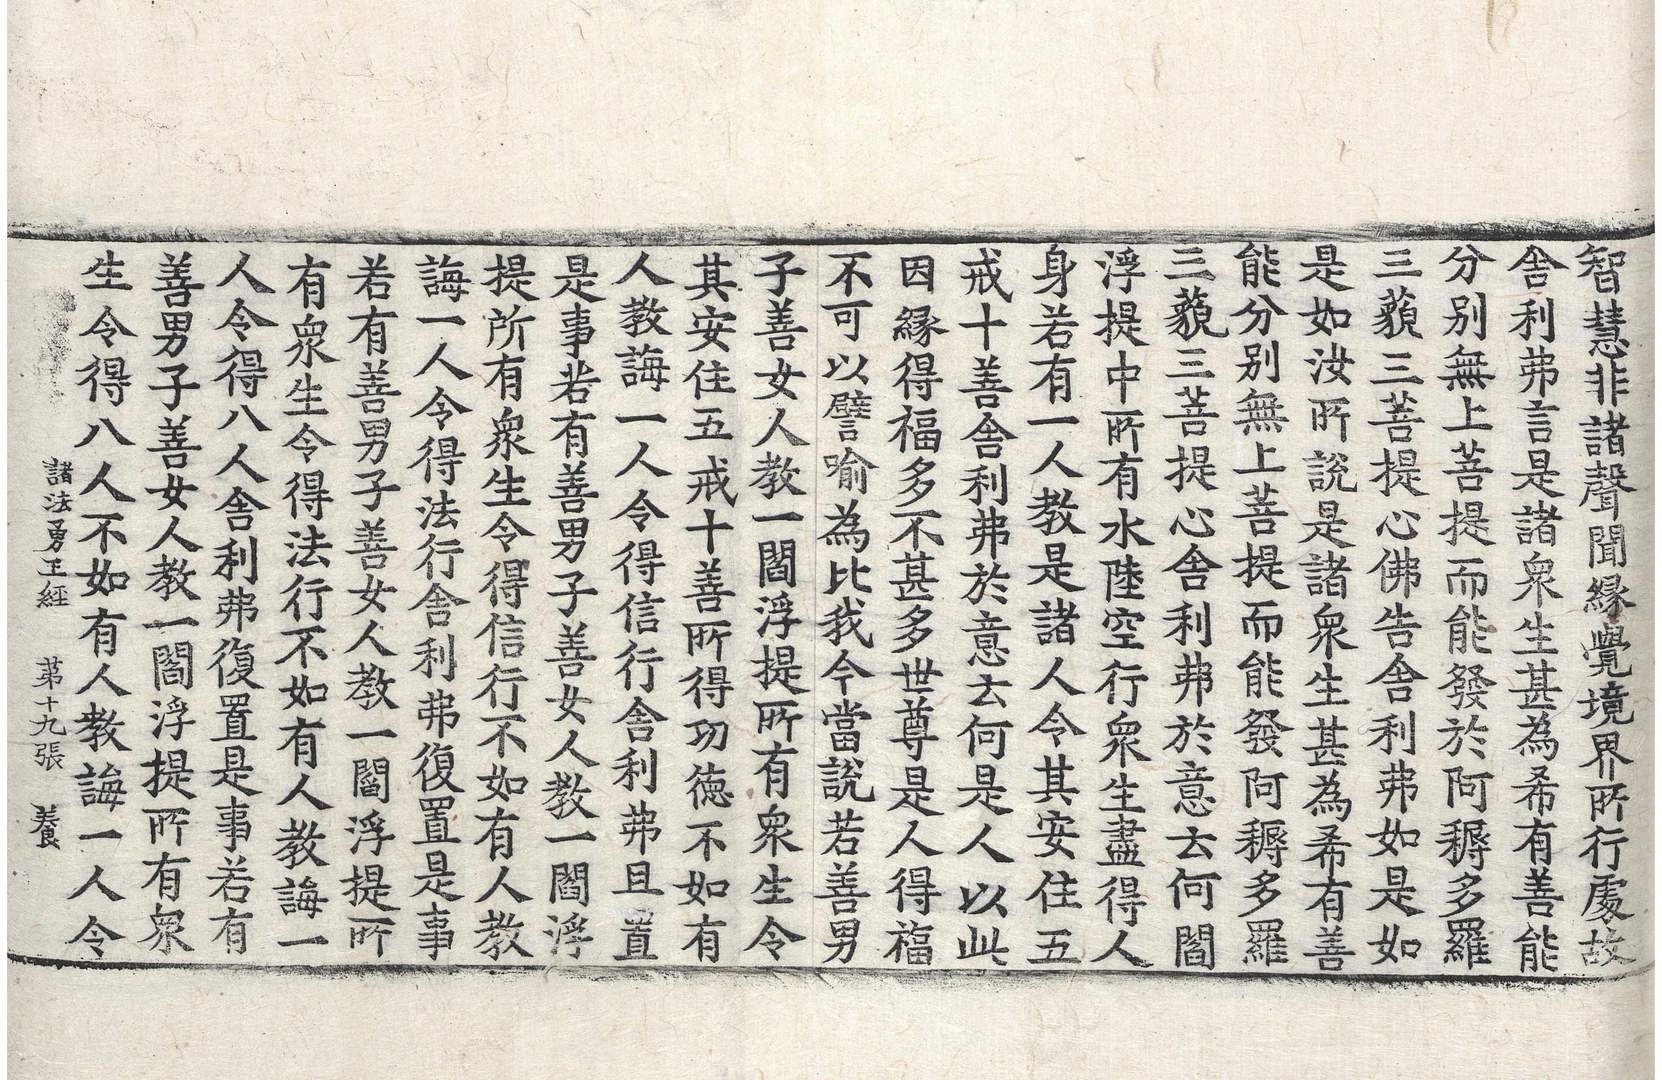 智慧非諸聲聞緣覺境界所行處故
舎利弗言是諸衆生甚為希有善能
分别無上菩提而能發於阿耨多羅
三藐三菩提心佛告舎利弗如是如
是如汝所說是諸衆生甚為希有善
能分别無上菩提而能發阿耨多羅
三藐三菩提心舎利弗於意云何閻
浮提中所有水陸空行衆生盡得人
身若有一人教是諸人令其安住五
戒十善舎利弗於意云何是人以此
因緣得福多不甚多世尊是人得福
不可以譬喻為比我今當說若善男
子善女人教一閻浮提所有衆生令
其安住五戒十善所得功德不如有
人教誨一人令得信行舎利弗且置
是事若有善男子善女人教一閻浮
提所有衆生令得信行不如有人教
誨一人令得法行舎利弗復置是事
若有善男子善女人教一閻浮提所
有衆生令得法行不如有人教誨一
人令得八人舎利弗復置是事若有
善男子善女人教一閻浮提所有衆
生令得八人不如有人教誨一人令
諸法勇王經 第十九張 養